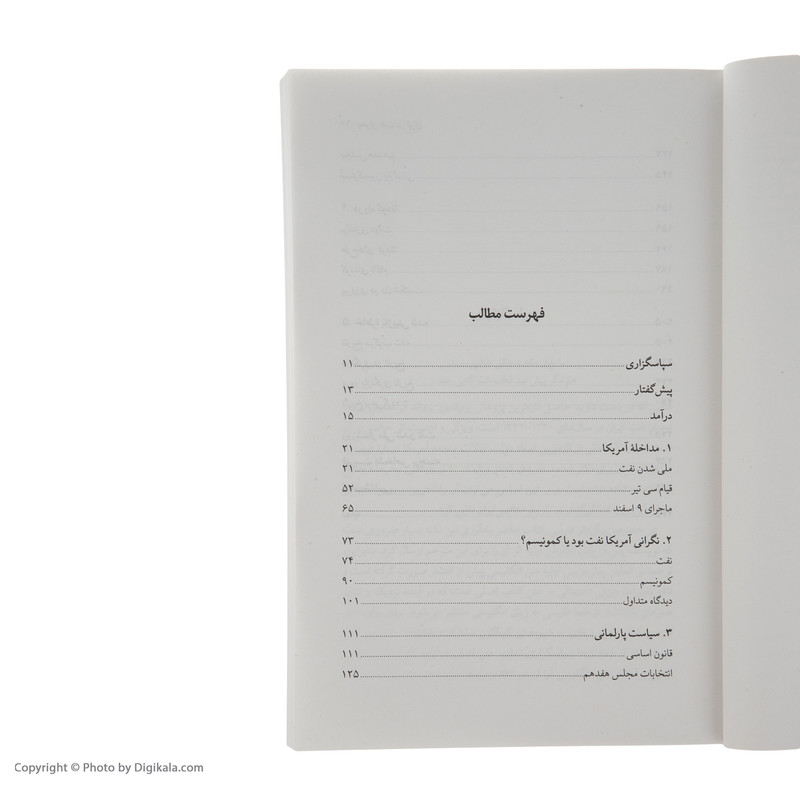 فهرست مطالب
سپاسگزاری ۱۱
پیش‌گفتار ۱۳
درآمد ۱۵
۱. مداخلهٔ آمریکا ۲۱
ملی شدن نفت ۲۱
قیام سی تیر ۵۲
ماجرای ۹ اسفند ۶۵
۲. نگرانی آمریکا نفت بود یا کمونیسم؟ ۷۳
نفت ۷۴
کمونیسم ۹۰
دیدگاه متداول ۱۰۱
۳. سیاست پارلمانی ۱۱۱
قانون اساسی ۱۱۱
انتخابات مجلس هفدهم ۱۲۵
Copyright © Photo by Digikala.com